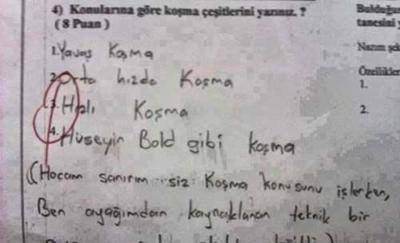 4) Konularına göre koşma çeşitlerini yazınız. ?
( 8 Puan )
1. Yavaş Koşma
2. Orta hızda Koşma
3. Hızlı Koşma
4. Hüseyin Bold gibi koşma
(Hocam sanırım siz Koşma konusunu işlerken,
Ben ayağımdan kaynaklanan teknik bir
Bulduğu
tanesini
Nazım
Özellikler
1.
2.